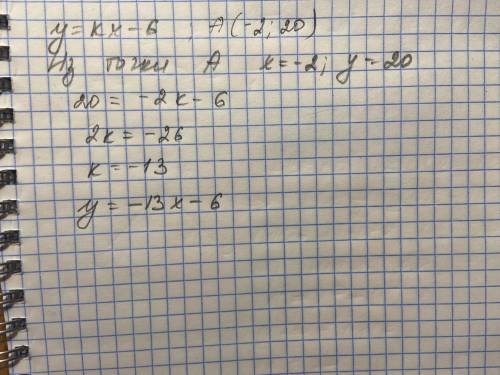 y = kx - 6 ; A (-2; 20)
Из точки A x = -2; y - 20
20 = -2k - 6
2k = -26
k = -13
y = -13x - 6